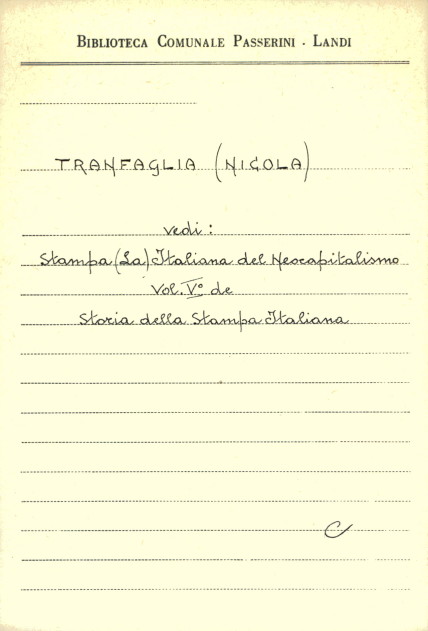 BIBLIOTECA COMUNALE PASSERINI - LANDI
TRANFAGLIA (NICOLA)
vedi:
Stampa (La) Italiana del Neocapitalismo
Vol. V° de
Storia della Stampa Italiana
C